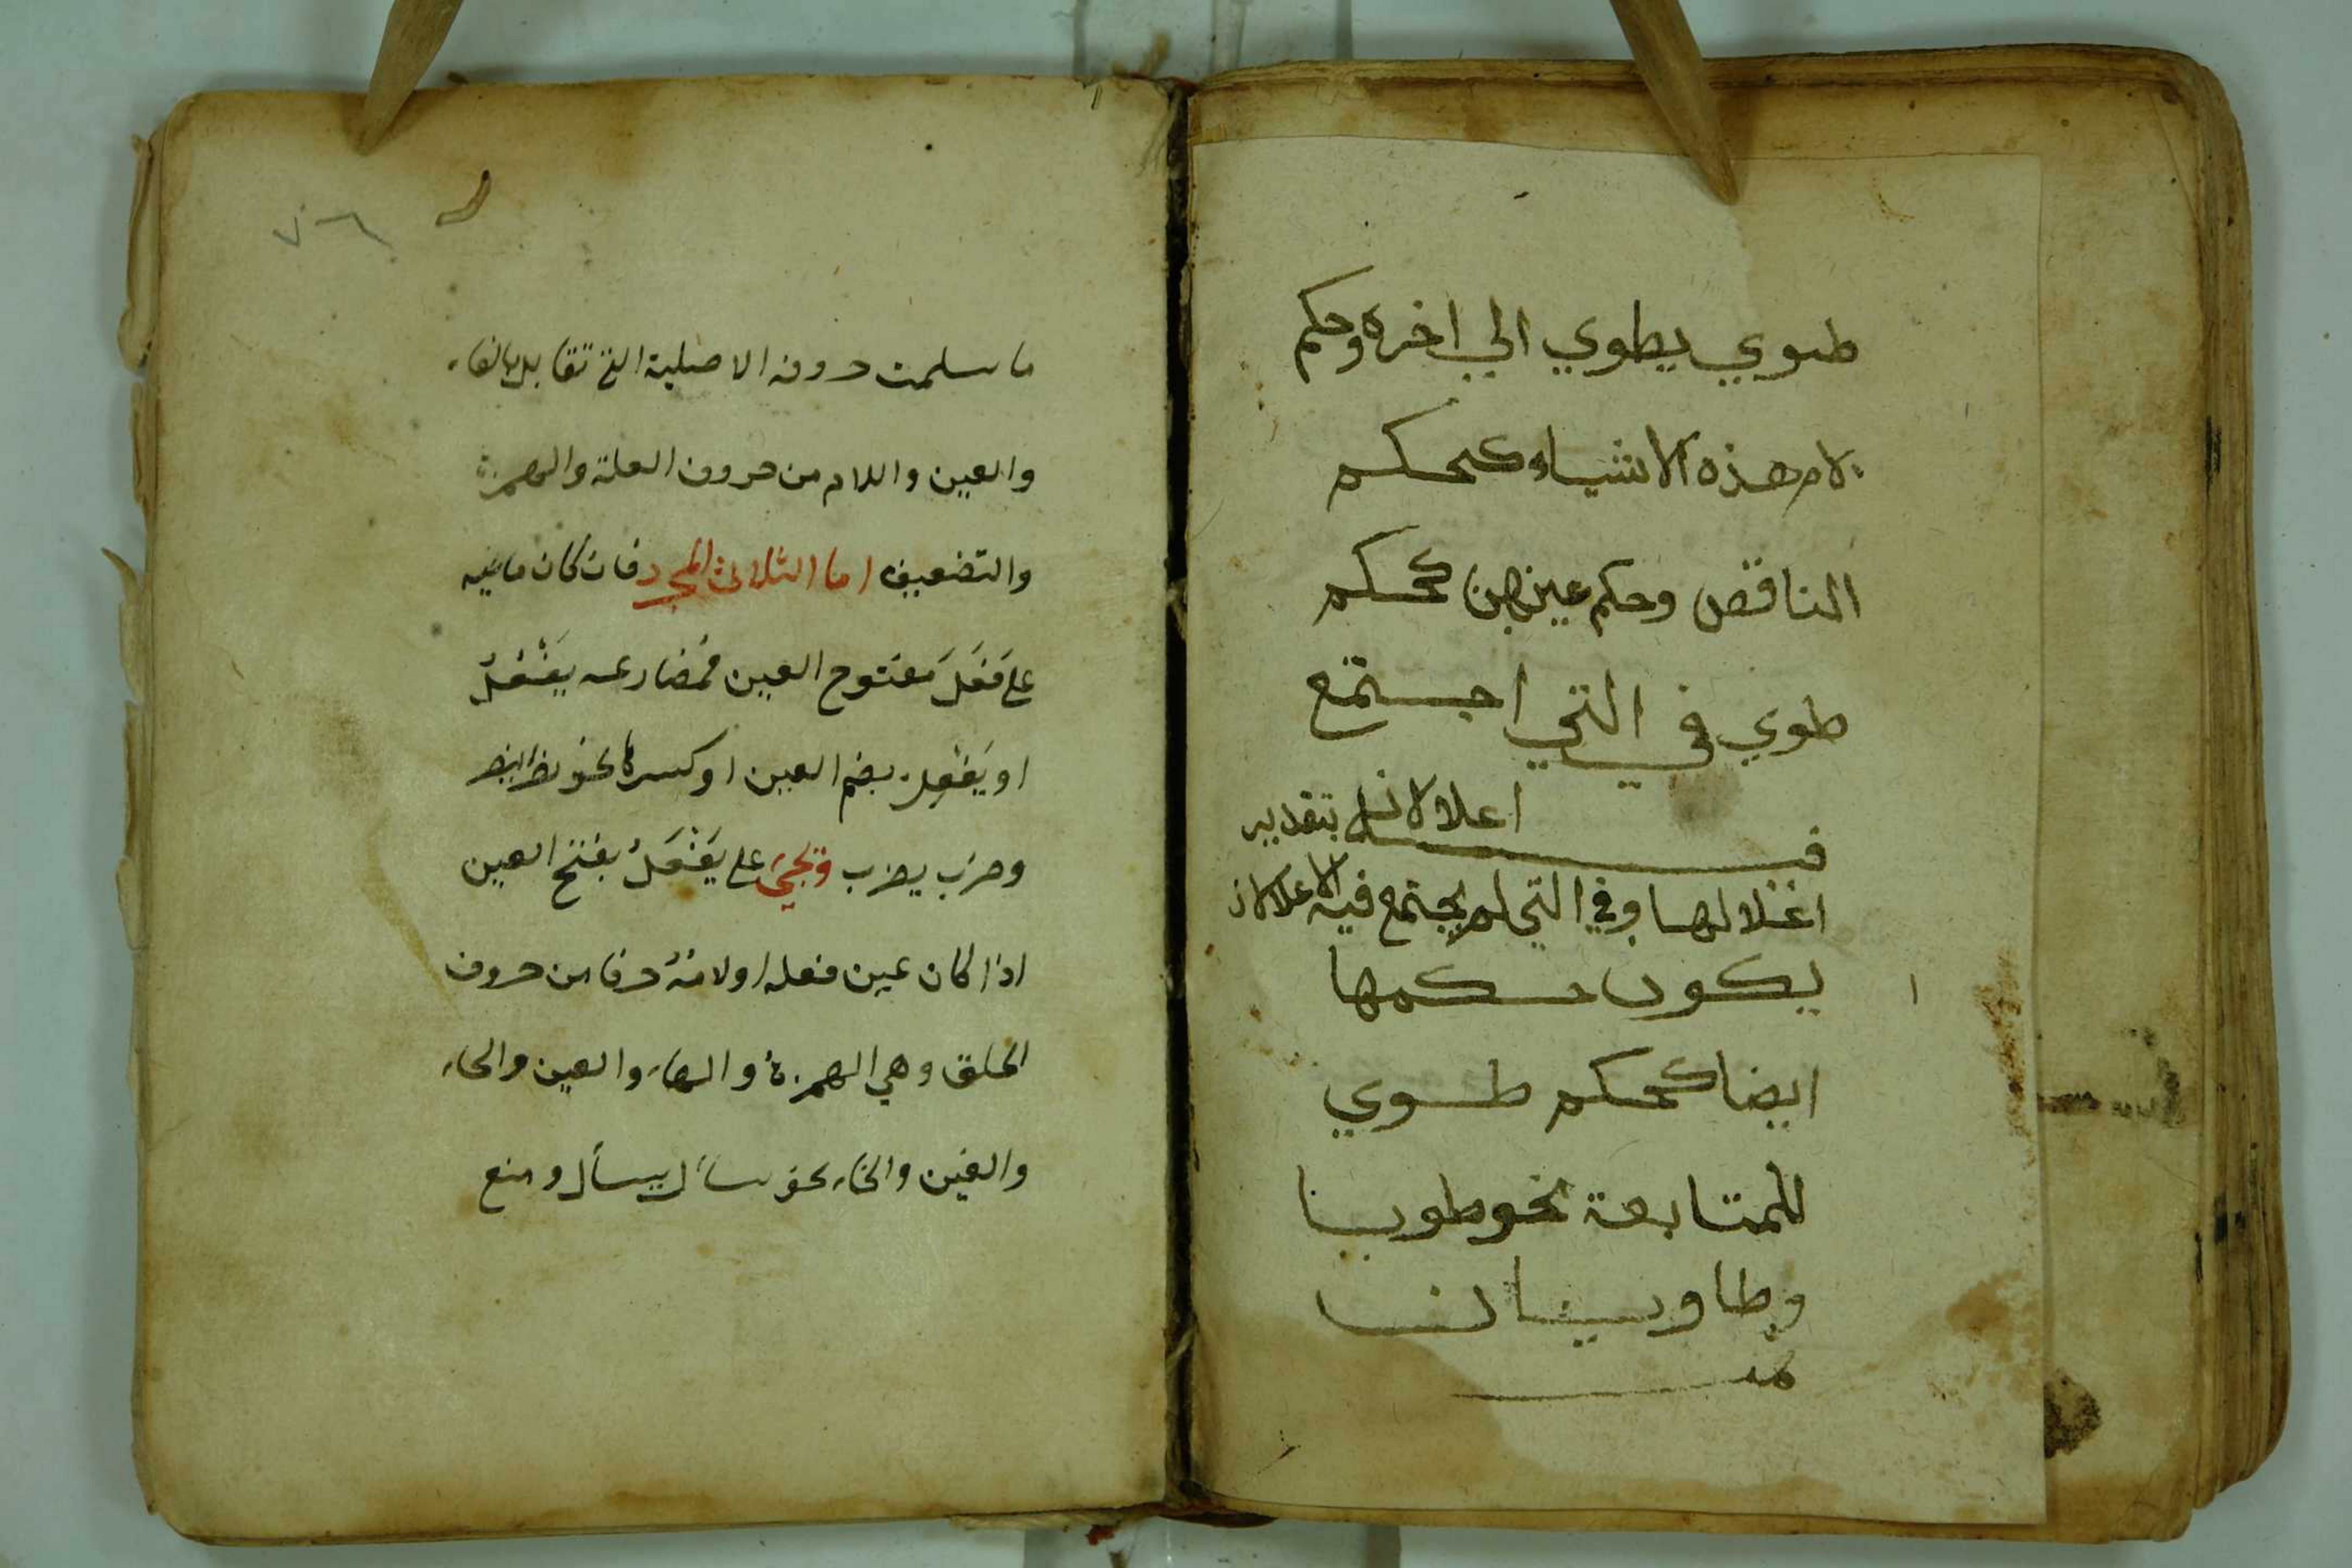 طوي يطوي الي اخره وحكم
لام هذه الاشياء كحكم
الناقص وحكم عينهن كحكم
طوي في التي اجتمع
فيه اعلالان بتقدير
اعلالها وفي التي لم يجتمع فيه الاعلالان
يكون حكمها
ايضا كحكم طوي
للمتابعة نحو طويا
وطاويان
تمت
٧٦
ما سلمت حروفه الاصلية التي تقابل بالفاء
والعين واللام من حروف العلة والهمزة
والتضعيف اما الثلاثي المجرد فان كان ماضيه
على فَعَلَ مفتوح العين فمُضارعه يَفْعُلُ
او يَفْعِل بضم العين او كسرها نحو نصر ينصر
وضرَب يضرب وتجيئ على يَفْعَلُ بفتح العين
اذا كان عين فعله او لامهُ حرفا من حروف
الحلق وهي الهمزة والهاء والعين والحاء
والغين والخاء نحو سأل يسأل ومنع